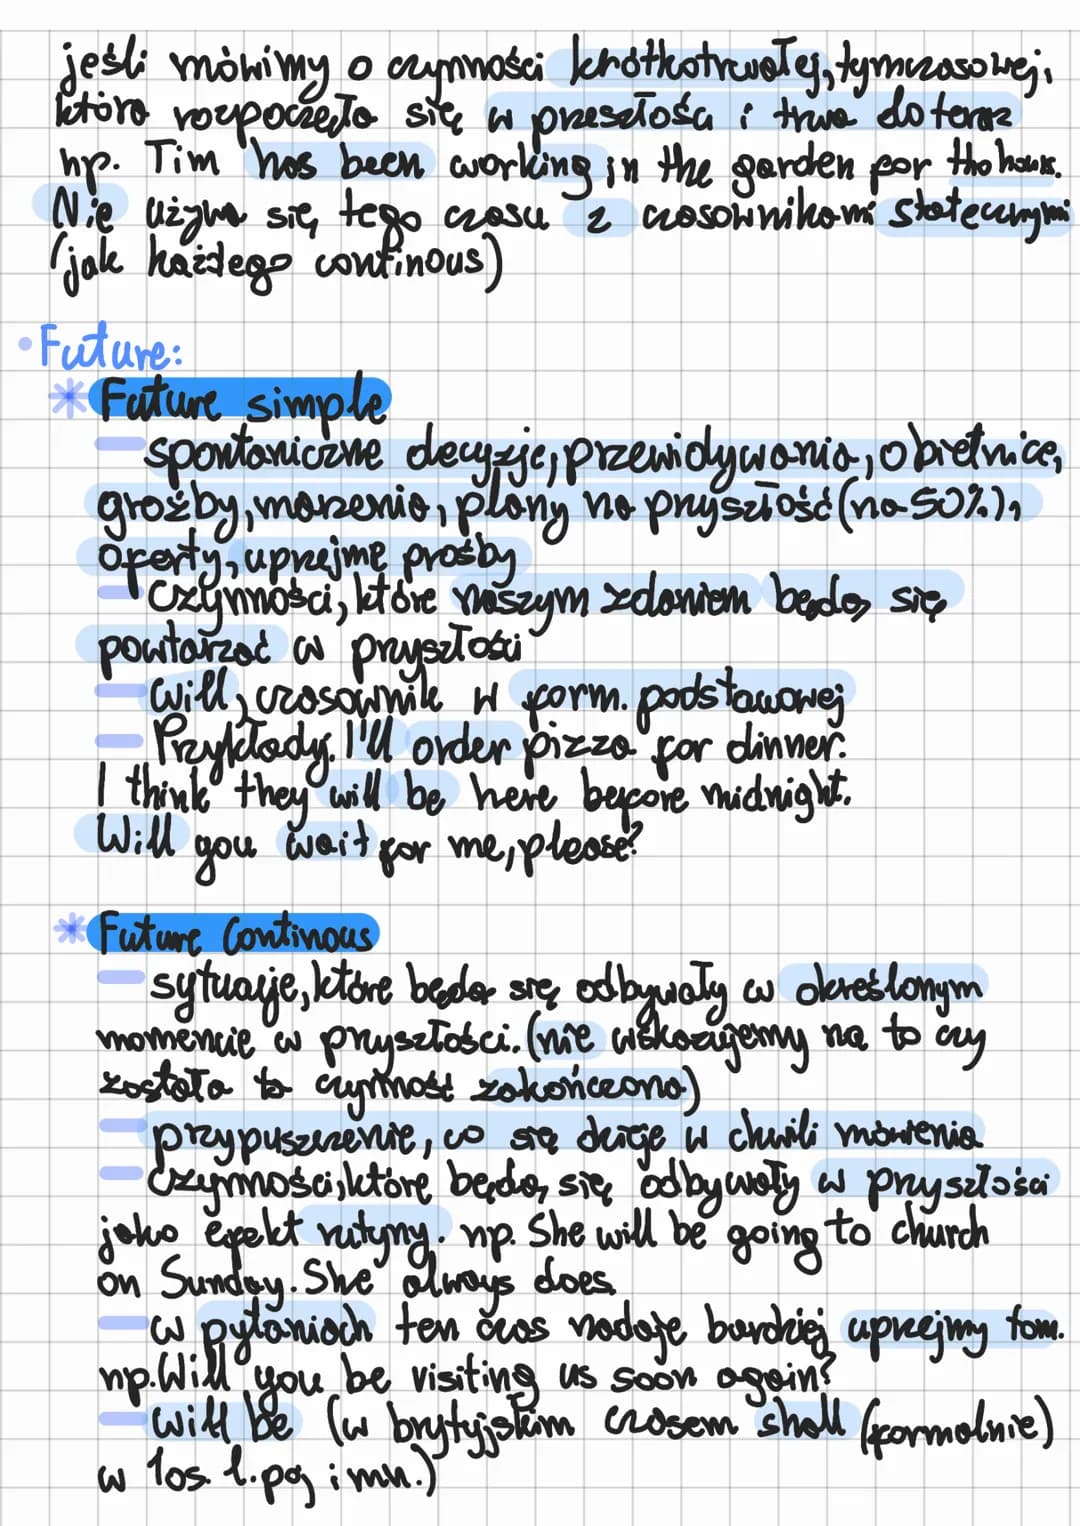 jeśli mówimy o czynności krótkotrwałej, tymczasowej,
która rozpoczęła się w przeszłości i trwa do teraz
np. Tim has been working in the garden for
Nie używa się tego czasu z czasownikami statecznymi
(jak każdego continous)
• Future:
* Future simple
– spontaniczne decyzje, przewidywania, obietnice,
groźby, marzenia, plany na pryszłość (na 50%),
oferty, uprzejmę prośby
– Czynności, które naszym zdaniem będą się
powtarzać w pryszłości
– Will, czasownik w form. podstawowej
– Przykłady. I'll order pizza for dinner.
I think they will be here before midnight.
Will you wait for me, please?
* Future Continous
– sytuacje, które będą się odbywały w określonym
momencie w pryszłości. (nie wskazujemy na to czy
została to czynność zakończona)
– przypuszczenie, co się dzieje w chwili mówienia
– Czynności, które będą się odbywały w pryszłości
jako efekt rutyny. np. She will be going to church
on Sunday. She always does.
– w pytaniach ten czas nadaje bardziej uprzejmy ton.
np. Will you be visiting us soon again?
– will be (w brytyjskim czasem shall (formalnie)
w 1os. l.poj i mn.)